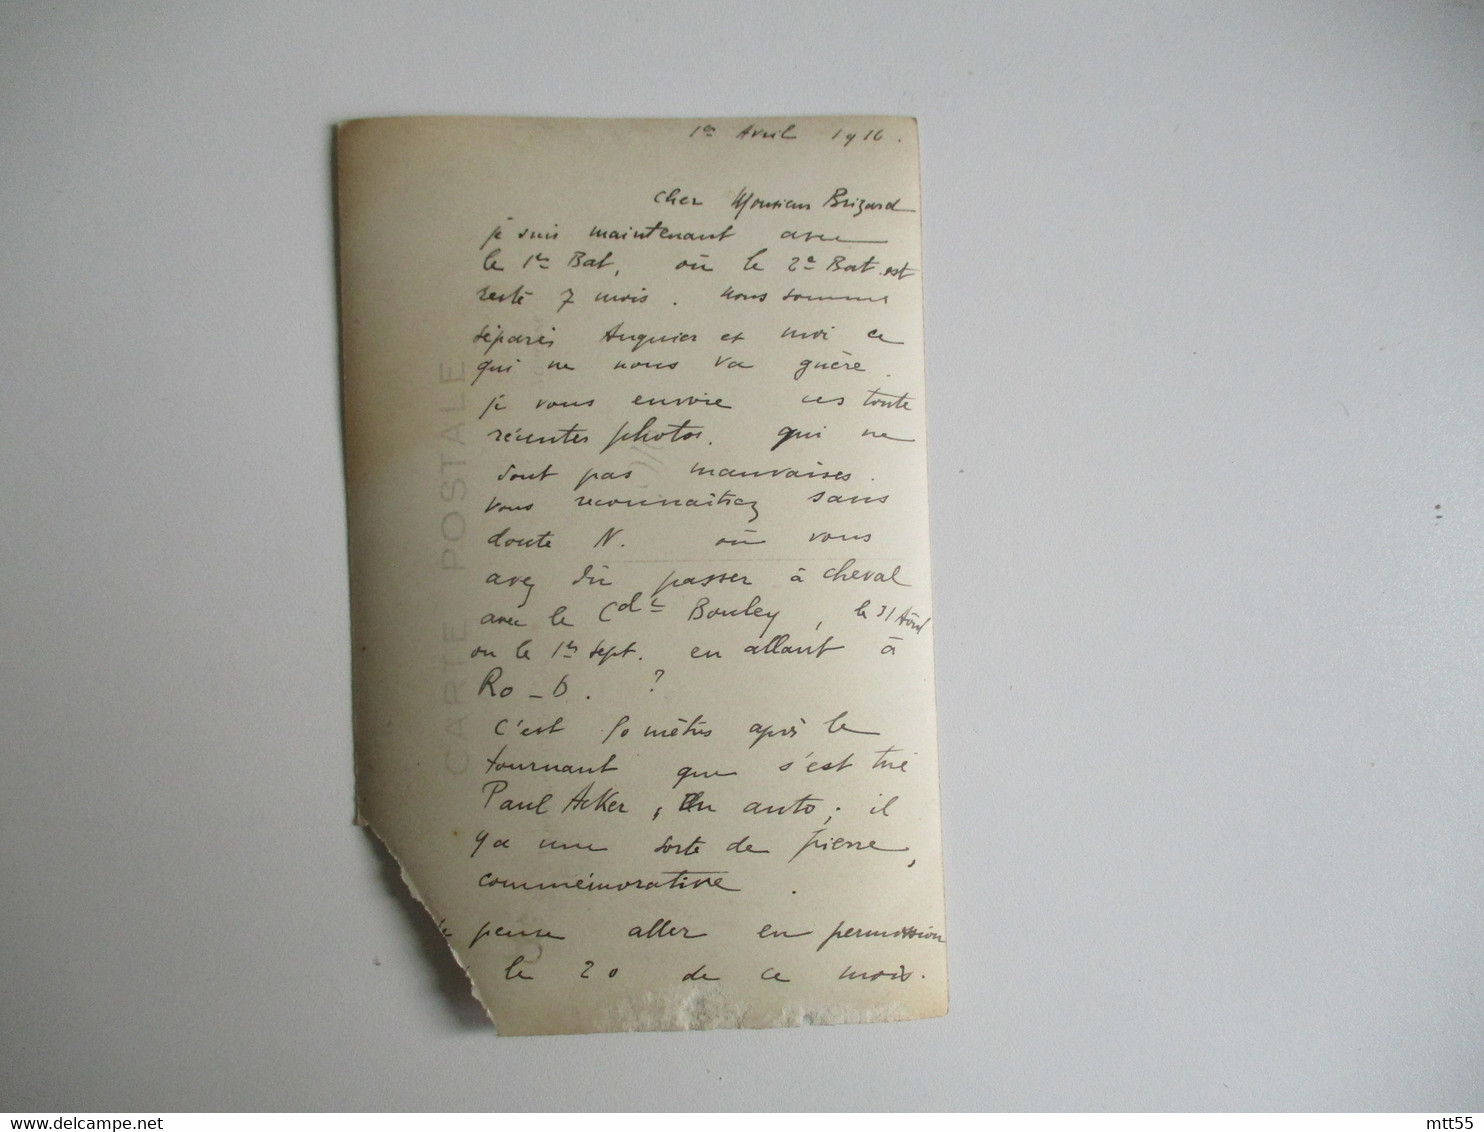 1er Avril 1916.
Cher Monsieur Brizard
je suis maintenant avec
le 1er Bat, où le 2e Bat. est
resté 7 mois. Nous sommes
séparés Auguier et moi ce
qui ne nous va guère.
je vous envoie ces toute
récentes photos. qui ne
sont pas mauvaises.
Vous reconnaîtrez sans
doute N. où vous
avez dû passer à cheval
avec le Cdt Bouley, le 31 Août
ou le 1er Sept. en allant à
Ro_D. ?
C'est 50 mètres après le
tournant que s'est tué
Paul Acker, En auto; il
y a une sorte de pierre,
commémorative.
je pense aller en permission
le 20 de ce mois.
CARTE POSTALE
mtt55